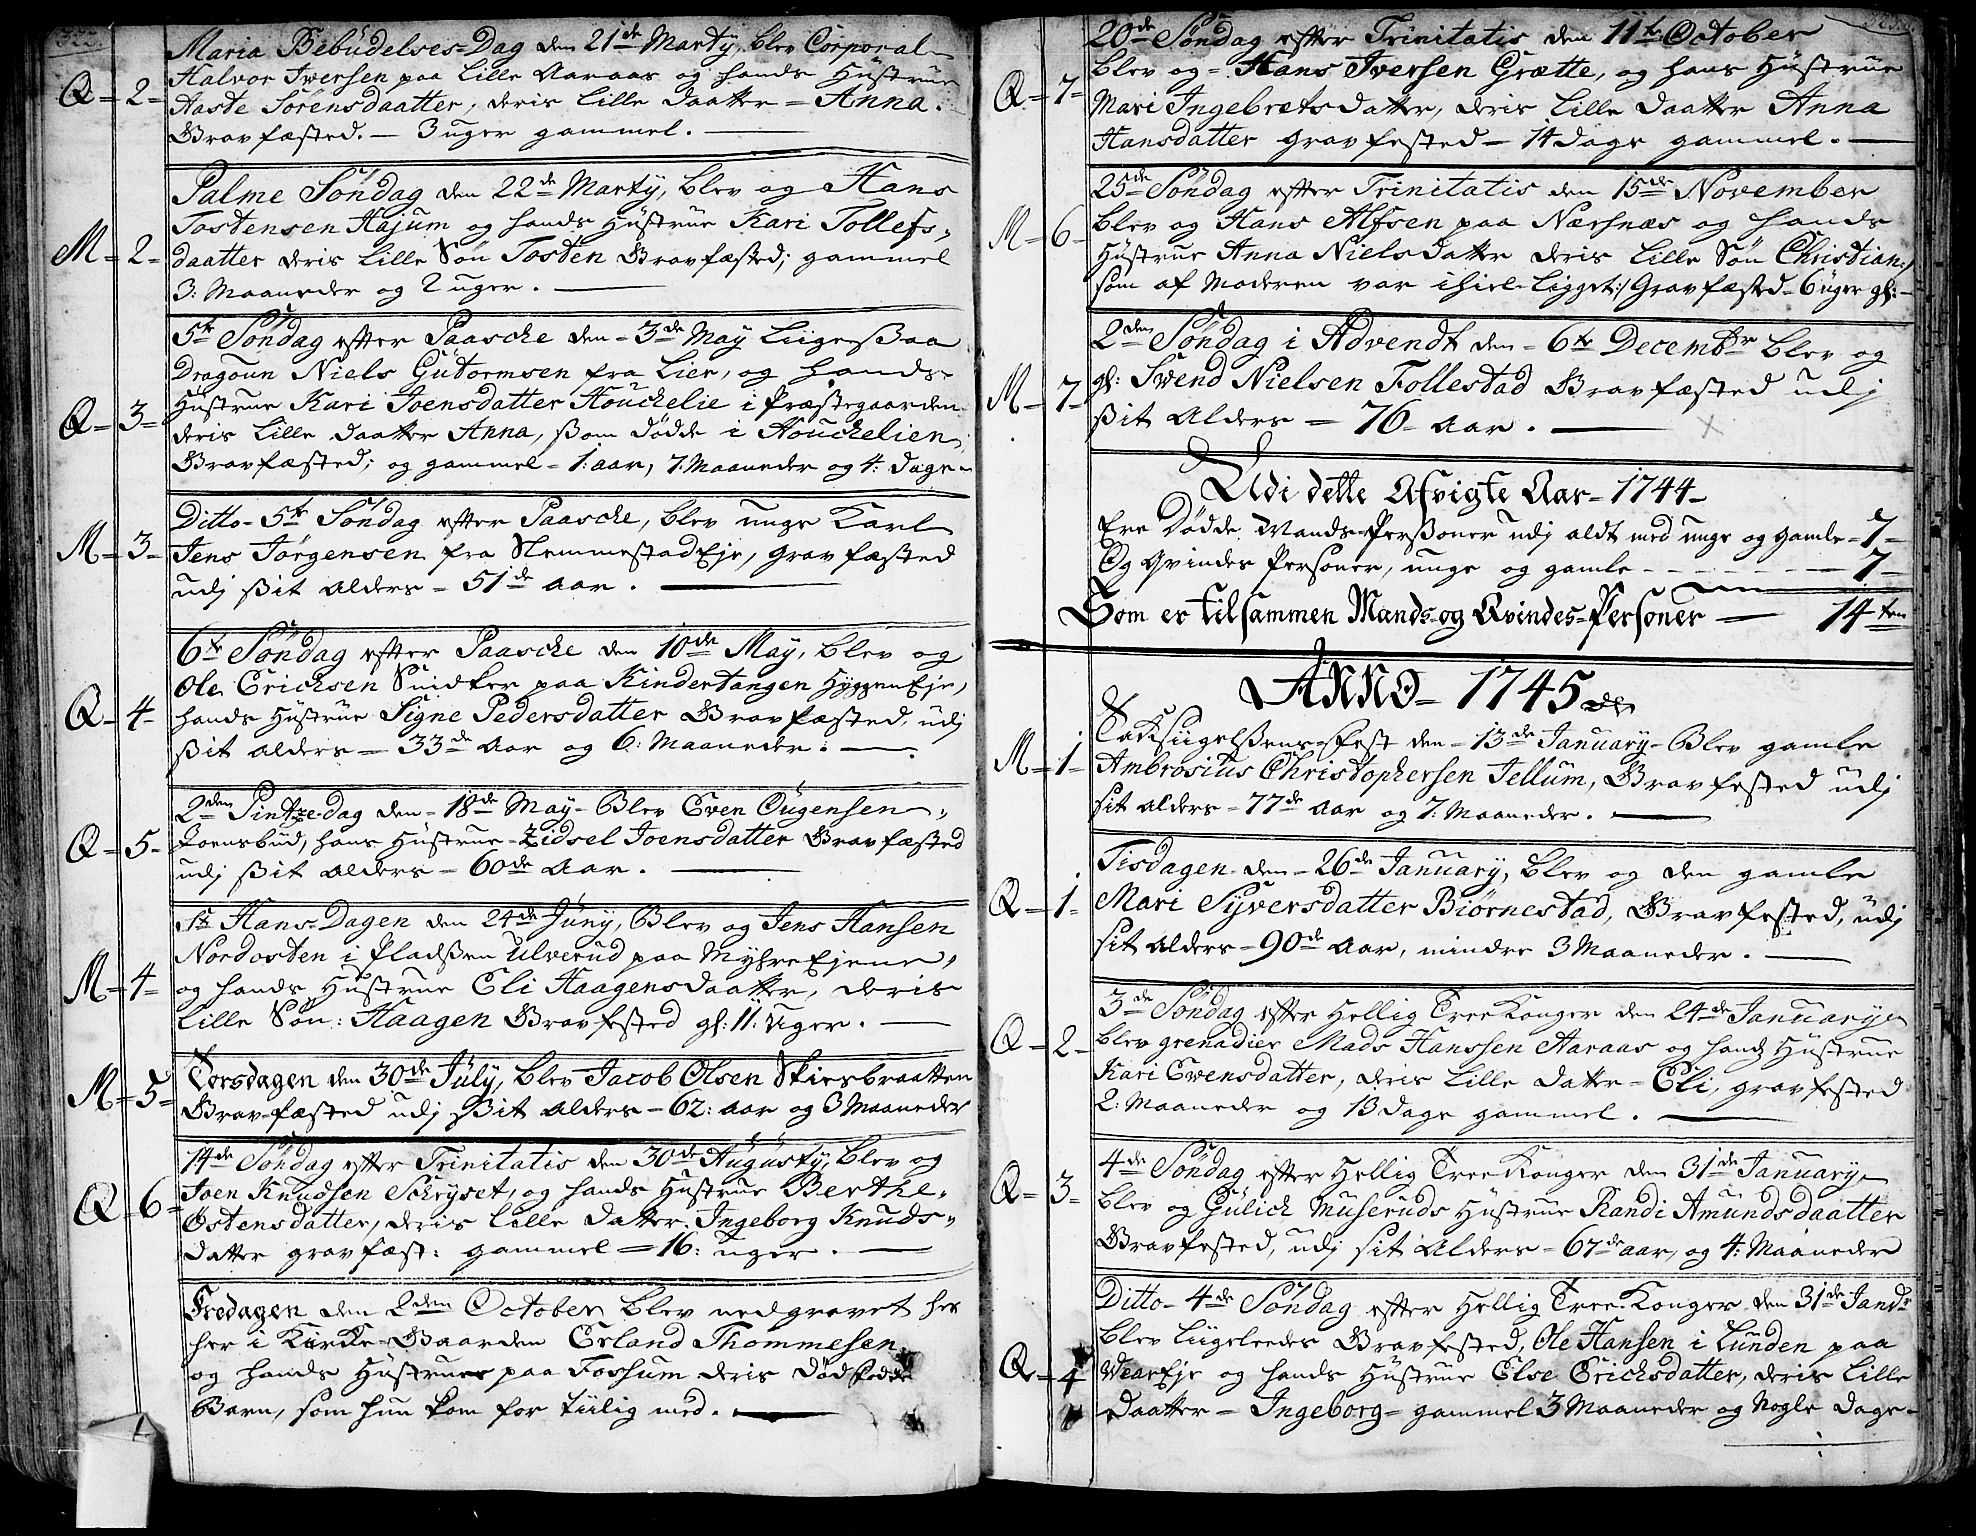 322.
Maria Bebudelses-Dag den 21de Martÿ, blev Corporal
Halvor Iversen paa Lille Aaraas og hands Hustrue
Q = 2 = Aaste Sørensdaatter, deris Lille daatter = Anna.
Gravfæsted. — 3 uger gammel.
Palme Søndag den 22de Martÿ, blev og Hans
Tostensen Hajum og hands Hustrue Kari Tollefs-
M = 2 = daatter deris Lille Søn Tosten Gravfæsted; gammel
3: Maaneder og 2 uger.
5te Søndag efter Paasche den 3de Maÿ Liigesaa
Dragoun Niels Gutormsen fra Lier, og hands
Q = 3 = Hustrue Kari Joensdatter Houchelie i Præstegaarden
deris Lille daatter Anna, som dødde i Houchelien
Gravfæsted; og gammel = 1: aar, 7: Maaneder og 4: dage
Ditto- 5te Søndag efter Paasche, blev unge Karl
M = 3 = Jens Jørgensen fra Slemmestad Eje, gravfæsted
udj sit alders = 51de aar.
6te Søndag efter Paasche den 10de Maÿ, blev og
Ole Erichsen Snidker paa Kindertangen Hyggen Eje,
Q = 4 = hands Hustrue Signe Pedersdatter Gravfæsted, udj
sit alders = 33de aar og 6: Maaneder.
2den Pintze-dag den 18de Maÿ- Blev Even Eugensen
Q = 5 = Joensbud, hans Hustrue Zidsel Joensdatter Gravfæsted
udj sit alders = 60de Aar.
St Hans-Dagen den 24de Junÿ, Blev og Jens Hansen
Nordosten i Pladsen Ulverud paa Myhre Ejene,
M = 4 = og hands Hustrue Eli Haagensdaatter, deris
Lille Søn: Haagen Gravfested gl: 11: Uger.
Torsdagen den 30de Julÿ, blev Jacob Olsen Skiesbraatten
M = 5 = Gravfæsted udj sit alders = 62: aar og 3 Maaneder
14de Søndag efter Trinitatis den 30de Augustÿ, blev og
Joen Knudsen Schryset, og hands Hustrue Berthe
Q = 6 = Østensdatter, deris Lille datter Ingeborg Knuds-
datter gravfæst: gammel = 16: uger.
Fredagen den 2den October blev nedgravet her
her i Kirke-Gaarden Erland Thommesen
og hands Hustrues paa Fossum deris Død fødde
Barn, som hun kom for tiilig med.
20de Søndag efter Trinitatis den 11te October
blev og = Hans Iversen Grætte, og hans Hustrue
Q = 7 = Mari Ingebretsdatter, deris Lille daatter Anna
Hansdatter gravfested = 14 dage gammel.
25de Søndag efter Trinitatis den 15de November
M = 6 = blev og Hans Alfsen paa Nærsnæs og hands
Hustrue Anna Nielsdatter deris Lille Søn Christian:/
som af Moderen var ihiel-Ligget:/ Gravfæsted = 6 uger gl:
2den Søndag i Advendt den = 6te Decembr blev og
M = 7 = gl: Svend Nielsen Follestad Gravfæsted udj
sit alders = 76 aar.
Udi dette Afvigte Aar = 1744
Ere Dødde Mands-Personer udj aldt med unge og gamle = 7
Og Qvindes Personer, unge og gamle - - - 7
Som er tilsammen Mands-og Qvindes-Personer — 14ten
ANNO = 1745
Taksiigelsens-fest den 13de Januarÿ- Blev gamle
M = 1 = Ambrosius Christophersen Jellum, Gravfested udj
sit alders = 77de aar og 7: Maaneder.
Tisdagen den 26de Januarÿ, blev og den gamle
Q = 1 = Mari Syversdatter Biørnestad, Gravfested, udj
sit alders = 90de aar, mindre 3 Maaneder.
3de Søndag efter Hellig Tree Konger den 24de Januarÿ
Q = 2 = blev grenadier Mads Hanssen Aaraas og hands Hustrue
Kari Evensdatter, deris Lille datter = Eli, gravfested
2: Maaneder og 13 dage gammel.
4de Søndag efter Hellig Tree Konger den 31de Januarÿ
Q = 3 = blev og Gulich Museruds Hustrue Randi Amundsdaatter
Gravfested, udj sit Alders = 67de aar, og 4: Maaneder
Ditto- 4de Søndag efter Hellig Tree-Konger den 31de Janr
blev Liigeleedes Gravfested, Ole Hansen i Lunden paa
Q = 4 Vear Eje og hands Hustrue Else Erichsdatter, deris Lille
daatter = Ingeborg = gammel 3 Maaneder og Nogle dage